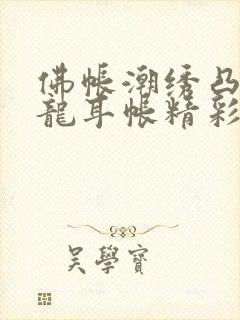 佛帳潮绣凸
龍耳帳精彩
吴學寶